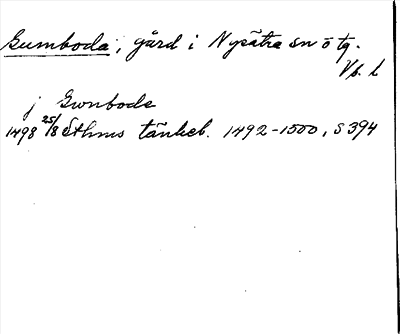 Gumboda, gård i Nysätra sn o tg.
Vb. l
j Gwnbode
1498 25/8 Sthms tänkeb. 1492-1500, S 394